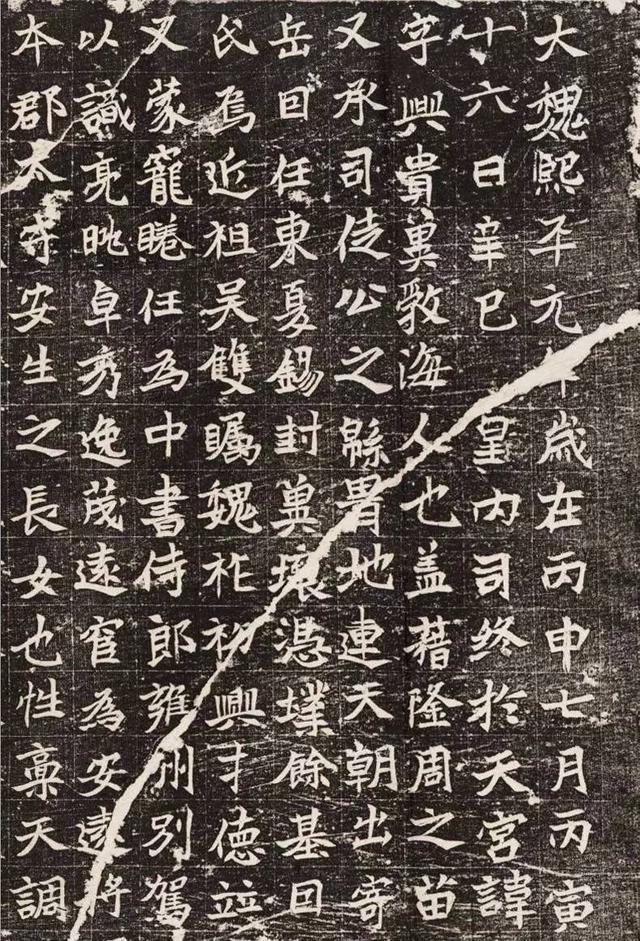 大魏熙平元年歲在丙申七月丙寅
十六日辛巳 皇内司終於天宮諱
字興貴冀勃海人也盖藉隆周之苗
又承司徒公之緜冑地連天朝出寄
岳囙任東夏錫封冀壤憑墣餘基囙
氏焉近祖吴雙矚魏祚初興才德竝
又蒙寵睠任為中書侍郎雍州別駕
以識亮眺卓秀逸茂遠官為安遠將
本郡太守安生之長女也性稟天調